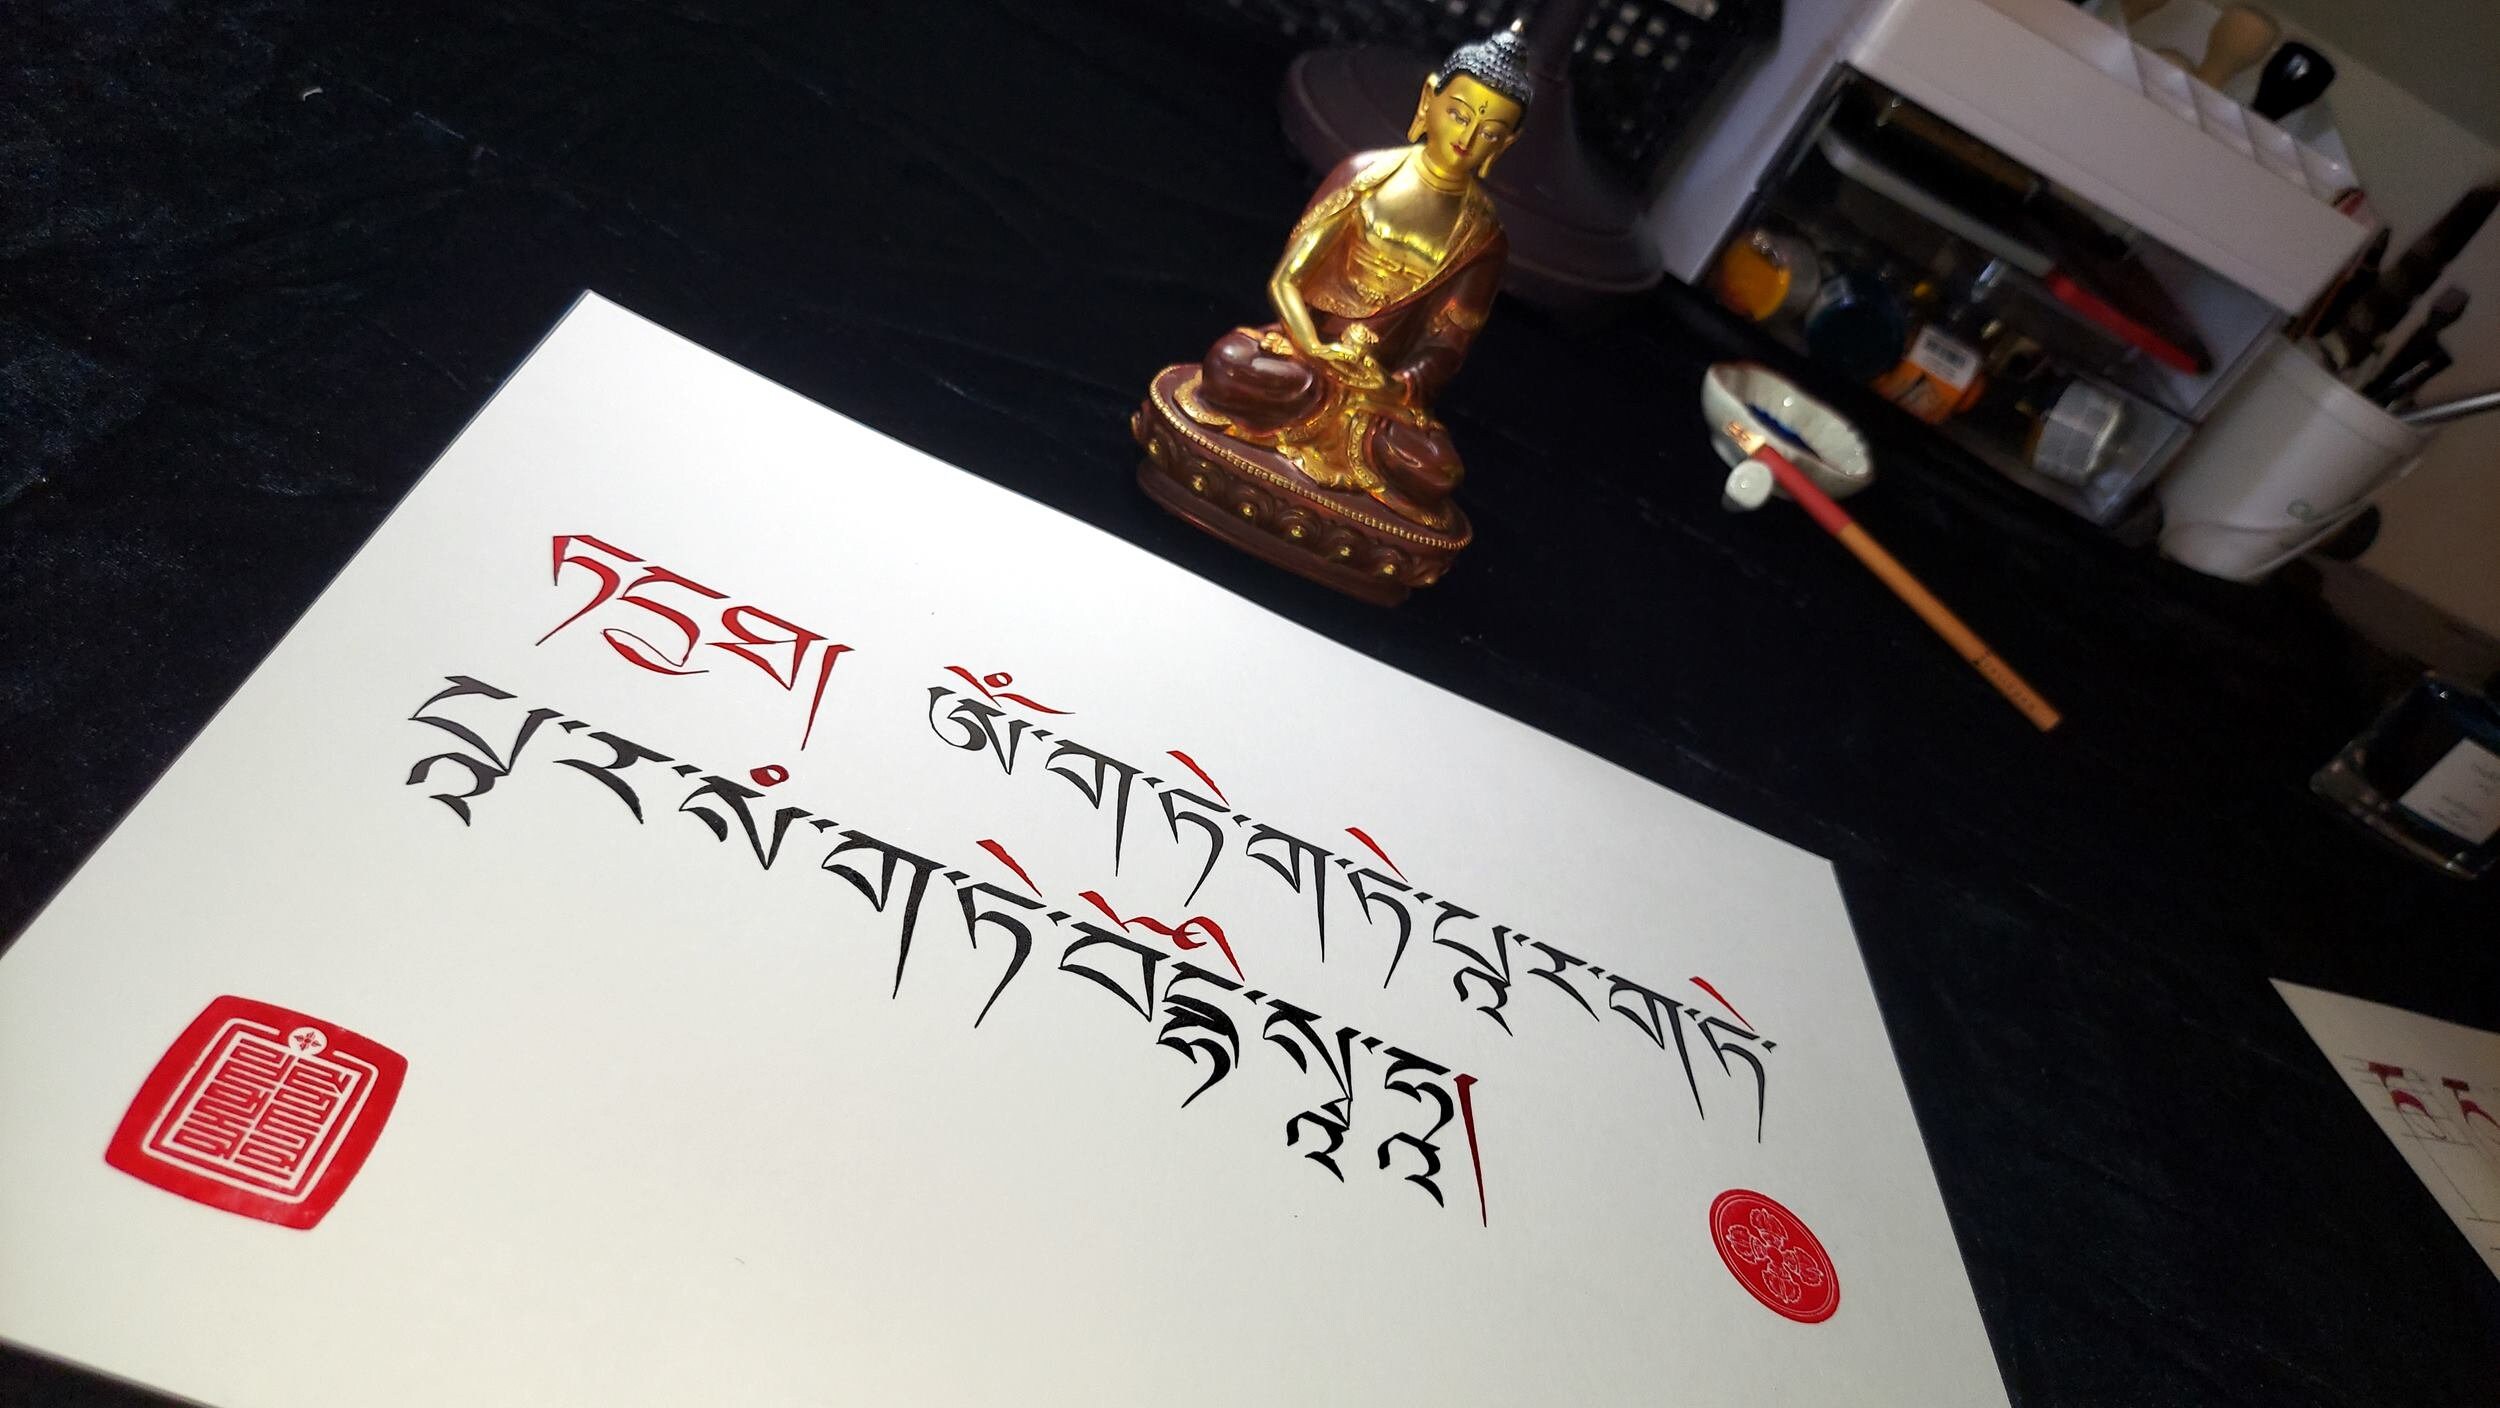 ཏདྱཐ། ཨོཾ་ག་ཏེ་ག་ཏེ་པཱ་ར་ག་ཏེ་
པཱ་ར་སཾ་ག་ཏེ་བོདྷི་སྭཱ་ཧཱ།